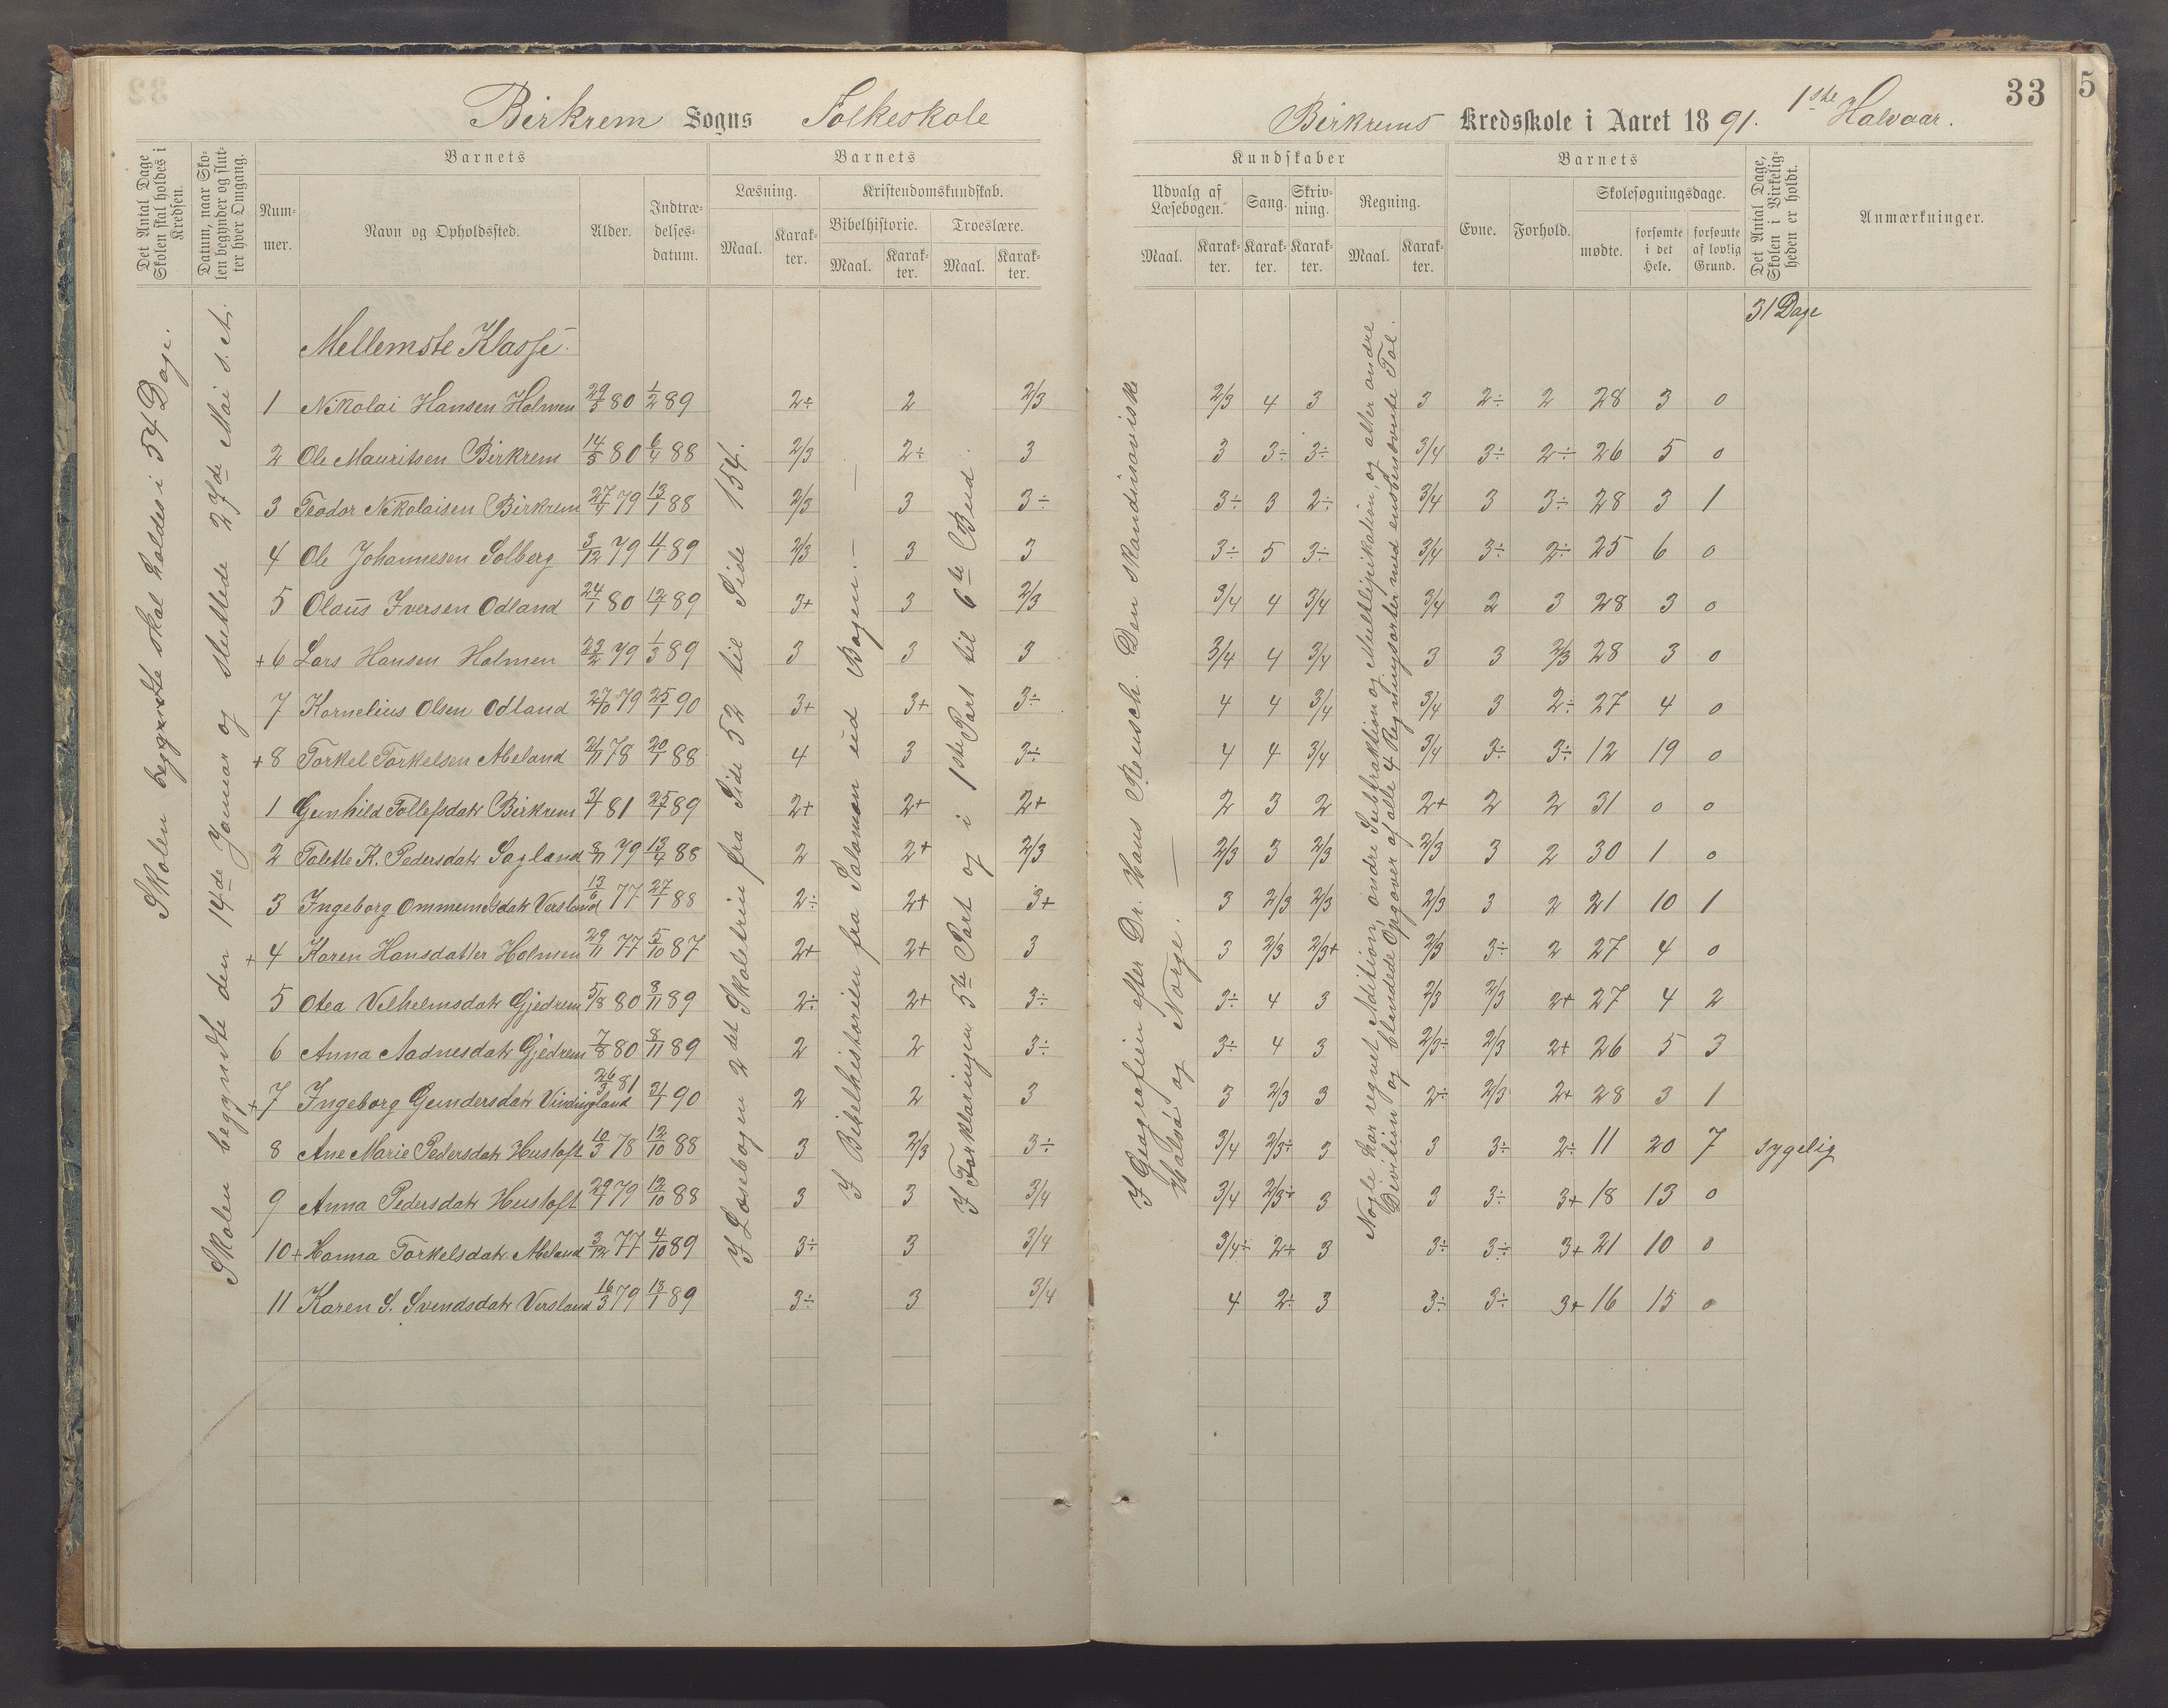 Birkrem Sogns Folkeskole
Det Antal Dage Skolen skal holdes i Kredsen.
Datum, naar Skolen begynder og slutter hver Omgang.
Barnets
Nummer.
Navn og Opholdssted.
Alder.
Indtrædelsesdatum.
Barnets
Læsning.
Maal.
Karakter.
Kristendomskundskab.
Bibelhistorie.
Maal.
Karakter.
Troeslære.
Maal.
Karakter.
Skolen begyndte skal holdes i 54 Dage.
Skolen begyndte den 14de Januar og sluttede 27de Mai s. A.
I Læsebogen 2det Skoletrin fra Side 52 til Side 154.
I Bibelhistorien fra Salomon ud Bogen. —
I Forklaringen 5te Part og i 1ste Part til 6te Bud.
Mellemste Klasse.
1 Nikolai Hansen Holmen 29/3 80 1/2 89 2÷ 2 2/3
2 Ole Mauritsen Birkrem 14/3 80 6/4 88 2/3 2÷ 3
3 Teodor Nikolaisen Birkrem 27/4 79 13/1 88 2/3 3 3÷
4 Ole Johannesen Solberg 3/12 79 4/1 89 2/3 3 3
5 Olaus Iversen Odland 24/1 80 12/1 89 3+ 3 2/3
+6 Lars Hansen Holmen 23/2 79 1/3 89 3 3 3
7 Kornelius Olsen Odland 27/10 79 25/1 90 3+ 3+ 3÷
+8 Torkel Torkelsen Abeland 21/11 78 20/1 88 4 3 3÷
1 Gunhild Tollefsdatr Birkrem 3/1 81 25/7 89 2+ 2+ 2+
2 Talette K. Pedersdatr Sagland 8/11 79 13/4 88 2 2+ 2/3
3 Ingeborg Ommundsdatr Versland 13/6 77 27/1 88 2÷ 2+ 3+
+4 Karen Hansdatter Holmen 29/11 77 5/10 87 2+ 2+ 3
5 Otea Velhelmsdatr Gjedrem 5/8 80 8/11 89 2÷ 2+ 3÷
6 Anna Aadnesdatr Gjedrem 7/8 80 8/11 89 2 2 3÷
+7 Ingeborg Gundersdatr Vindingland 26/3 81 21/1 90 2 2 3
8 Ane Marie Pedersdatr Hustoft 10/3 78 12/10 88 3 2/3 3÷
9 Anna Pedersdatr Hustoft 29/7 79 12/10 88 3 3 3/4
10+ Hanna Torkelsdatr. Abeland 3/12 77 4/10 89 3÷ 3 3/4
11 Karen S. Svendsdatr Versland 16/3 79 18/1 89 3÷ 3 3/4
33
5
Birkrems Kredsskole i Aaret 1891. 1ste Halvaar.
Kundskaber
Udvalg af Læsebogen.
Maal.
Karakter.
Sang.
Karakter.
Skrivning.
Karakter.
Regning.
Maal.
Karakter.
Barnets
Evne.
Forhold.
Skolesøgningsdage.
mødte.
forsømte i det Hele.
forsømte af lovlig Grund.
Det Antal Dage, Skolen i Virkeligheden er holdt.
Anmærkninger.
31 Dage
I Geografien efter Dr. Hans Reusch. Den skandinaviske
Halvø og Norge. —
Nogle har regnet Adition, andre Subtraktion og Multiplikation, og atter andre
Division og blandede Opgaver af alle 4 Regningsarter med ensbenævnte Tal.
2/3 4 3 3 2÷ 2 28 3 0
3 3÷ 3÷ 3/4 3÷ 2÷ 26 5 0
3÷ 3 2÷ 3/4 3 3÷ 28 3 1
3÷ 5 3÷ 3/4 3÷ 2÷ 25 6 0
3/4 4 3/4 3/4 2 3 28 3 0
3/4 4 3/4 3 3 2/3 28 3 0
4 4 3/4 3/4 3 2÷ 27 4 0
4 4 3/4 3/4 3÷ 3÷ 12 19 0
2 3 2 2+ 2 2 31 0 0
2/3 3 2/3 2/3 3 2 30 1 0
3 2/3 2/3 2/3 3 2 21 10 1
3 2/3 2/3+ 2/3 3÷ 2 27 4 0
3÷ 4 3 2/3 2/3 2+ 27 4 2
3÷ 4 3 2/3÷ 2/3 2+ 26 5 3
3 2/3 3 2÷ 2/3 2+ 28 3 1
3/4 2/3÷ 3 3 3÷ 2÷ 11 20 7 sygelig
3/4 2/3÷ 3 3 3÷ 3+ 18 13 0
3/4÷ 2÷ 3 3÷ 3÷ 3+ 21 10 0
4 2÷ 3 3÷ 3÷ 3+ 16 15 0